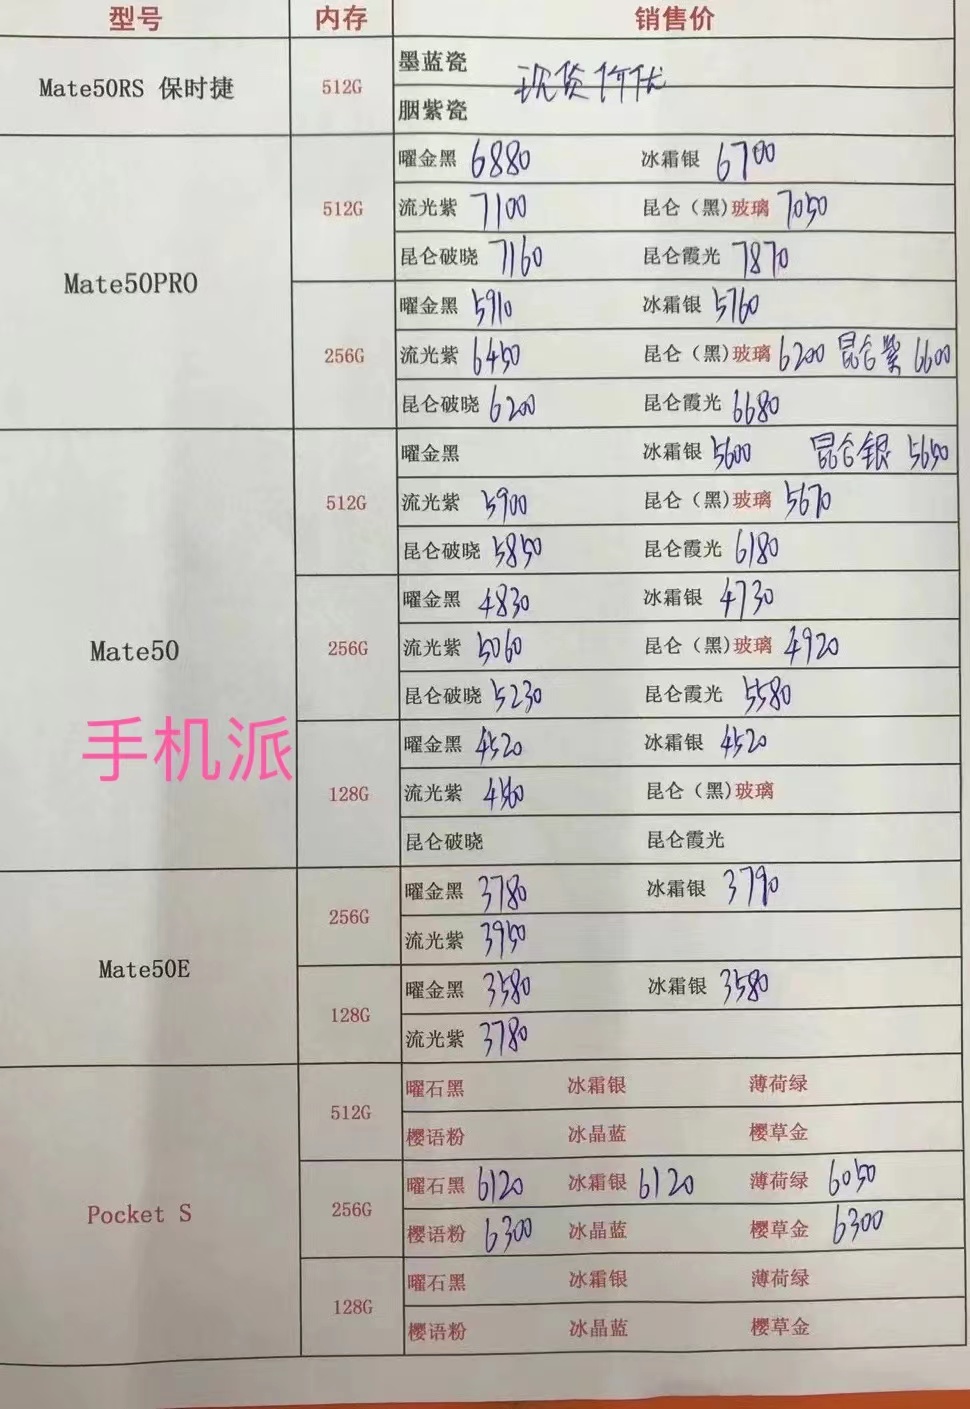 型号 内存 销售价
Mate50RS 保时捷 512G 墨蓝瓷 现货价优
胭紫瓷
Mate50PRO
512G 曜金黑 6880 冰霜银 6700
流光紫 7100 昆仑（黑)玻璃 7050
昆仑破晓 7160 昆仑霞光 7870
256G 曜金黑 5910 冰霜银 5760
流光紫 6450 昆仑（黑)玻璃 6200 昆仑紫 6600
昆仑破晓 6200 昆仑霞光 6680
Mate50
512G 曜金黑 冰霜银 5600 昆仑银 5650
流光紫 5900 昆仑（黑)玻璃 5670
昆仑破晓 5850 昆仑霞光 6180
256G 曜金黑 4830 冰霜银 4730
流光紫 5060 昆仑（黑)玻璃 4920
昆仑破晓 5230 昆仑霞光 5580
手机派
128G 曜金黑 4520 冰霜银 4520
流光紫 4560 昆仑（黑)玻璃
昆仑破晓 昆仑霞光
Mate50E
256G 曜金黑 3780 冰霜银 3790
流光紫 3950
128G 曜金黑 3580 冰霜银 3580
流光紫 3780
Pocket S
512G 曜石黑 冰霜银 薄荷绿
樱语粉 冰晶蓝 樱草金
256G 曜石黑 6120 冰霜银 6120 薄荷绿 6050
樱语粉 6300 冰晶蓝 樱草金 6300
128G 曜石黑 冰霜银 薄荷绿
樱语粉 冰晶蓝 樱草金